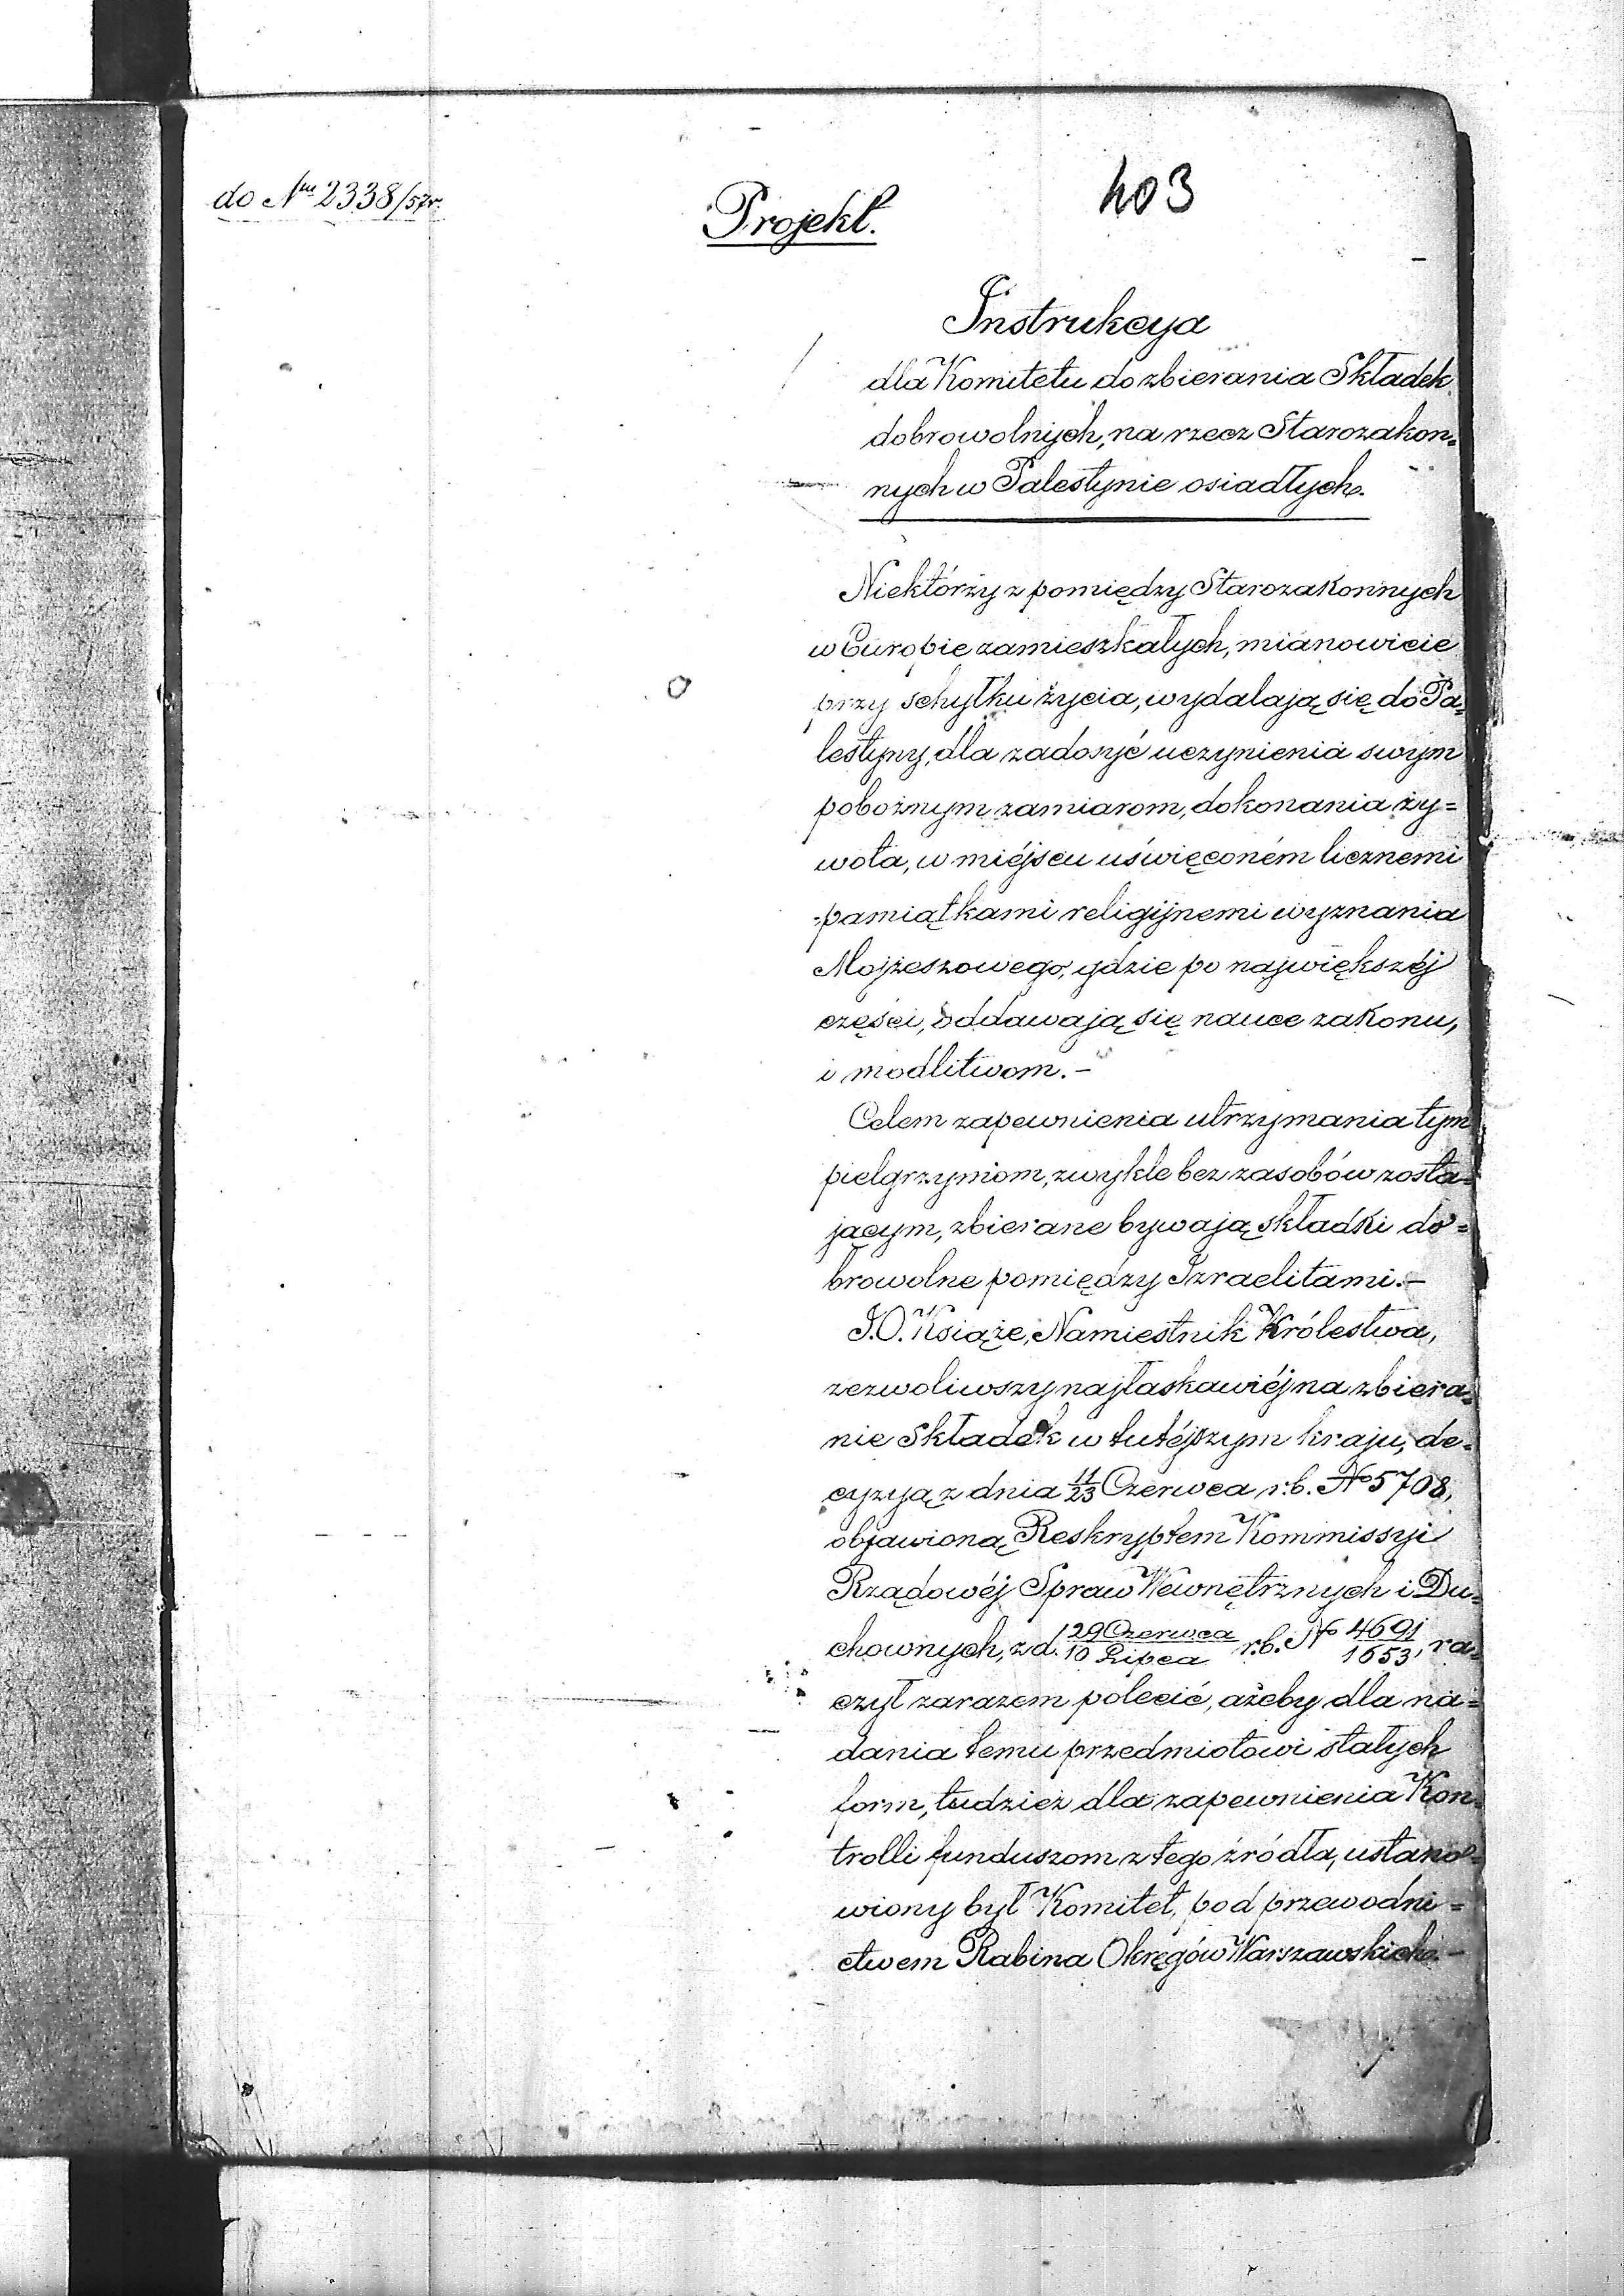 do Nru 2338/57r.
Projekt.
403
Instrukcya
dla Komitetu do zbierania Składek
dobrowolnych, na rzecz Starozakon=
nych w Palestynie osiadłych.
Niektórzy z pomiędzy Starozakonnych
w Europie zamieszkałych, mianowicie
przy schyłku życia, wydalają się do Pa=
lestyny, dla zadosyć uczynienia swym
pobożnym zamiarom, dokonania ży=
wota, w miéjscu uświęconém licznemi
pamiątkami religijnemi wyznania
Mojżeszowego, gdzie po największéj
części, oddawają się nauce zakonu,
i modlitwom.-
Celem zapewnienia utrzymania tym
pielgrzymom, zwykle bez zasobów zosta=
jącym, zbierane bywają składki do=
browolne pomiędzy Izraelitami.-
J.O. Książe, Namiestnik Królestwa,
zezwoliwszy najłaskawiéj na zbiera=
nie Składek w tutéjszym kraju, de=
cyzyją z dnia 11/23 Czerwca r.b. No 5708,
objawioną Reskryptem Kommissyi
Rządowéj Spraw Wewnętrznych i Du=
chownych, z d. 29 Czerwca/10 Lipca r.b. No 4691/1653, ra=
czył zarazem polecić, ażeby dla na=
dania temu przedmiotowi stałych
form, tudzież dla zapewnienia Kon=
trolli funduszom z tego źródła, ustano=
wiony był Komitet, pod przewodni=
ctwem Rabina Okręgów Warszawskich.-